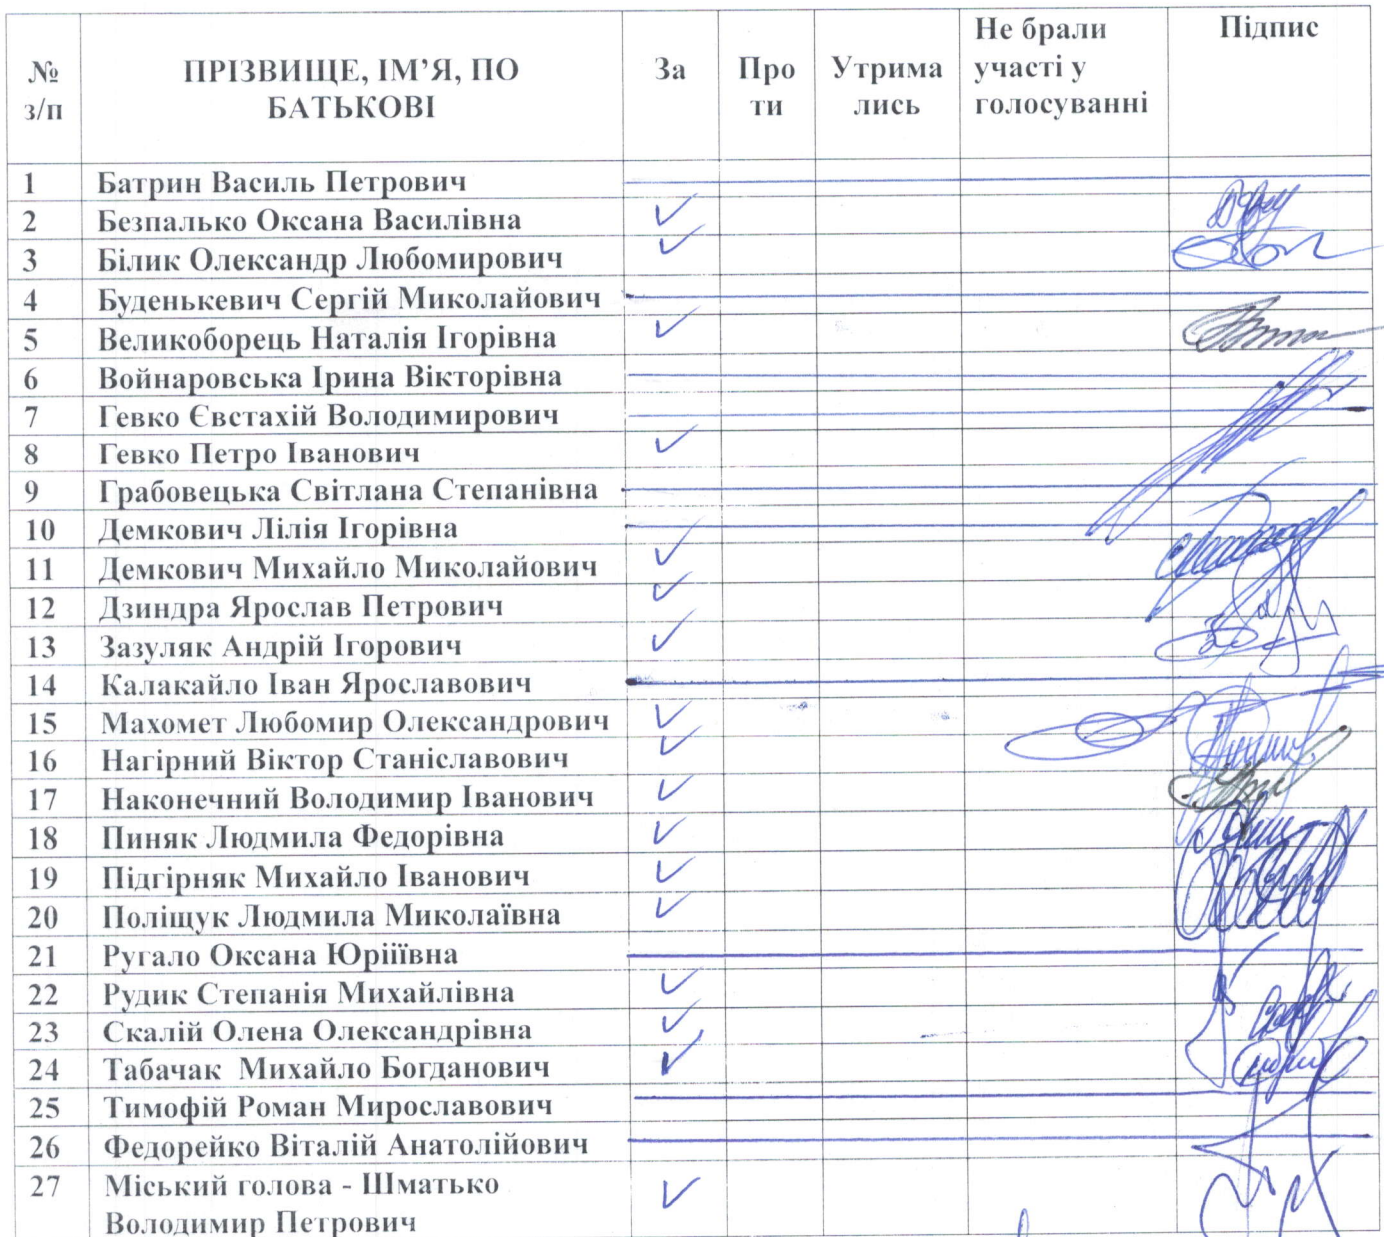 № з/п
ПРІЗВИЩЕ, ІМ’Я, ПО БАТЬКОВІ
За
Про ти
Утрима лись
Не брали участі у голосуванні
Підпис
1 Батрин Василь Петрович
2 Безпалько Оксана Василівна
3 Білик Олександр Любомирович
4 Буденькевич Сергій Миколайович
5 Великоборець Наталія Ігорівна
6 Войнаровська Ірина Вікторівна
7 Гевко Євстахій Володимирович
8 Гевко Петро Іванович
9 Грабовецька Світлана Степанівна
10 Демкович Лілія Ігорівна
11 Демкович Михайло Миколайович
12 Дзиндра Ярослав Петрович
13 Зазуляк Андрій Ігорович
14 Калакайло Іван Ярославович
15 Махомет Любомир Олександрович
16 Нагірний Віктор Станіславович
17 Наконечний Володимир Іванович
18 Пиняк Людмила Федорівна
19 Підгірняк Михайло Іванович
20 Поліщук Людмила Миколаївна
21 Ругало Оксана Юріїївна
22 Рудик Степанія Михайлівна
23 Скалій Олена Олександрівна
24 Табачак Михайло Богданович
25 Тимофій Роман Мирославович
26 Федорейко Віталій Анатолійович
27 Міський голова - Шматько
Володимир Петрович